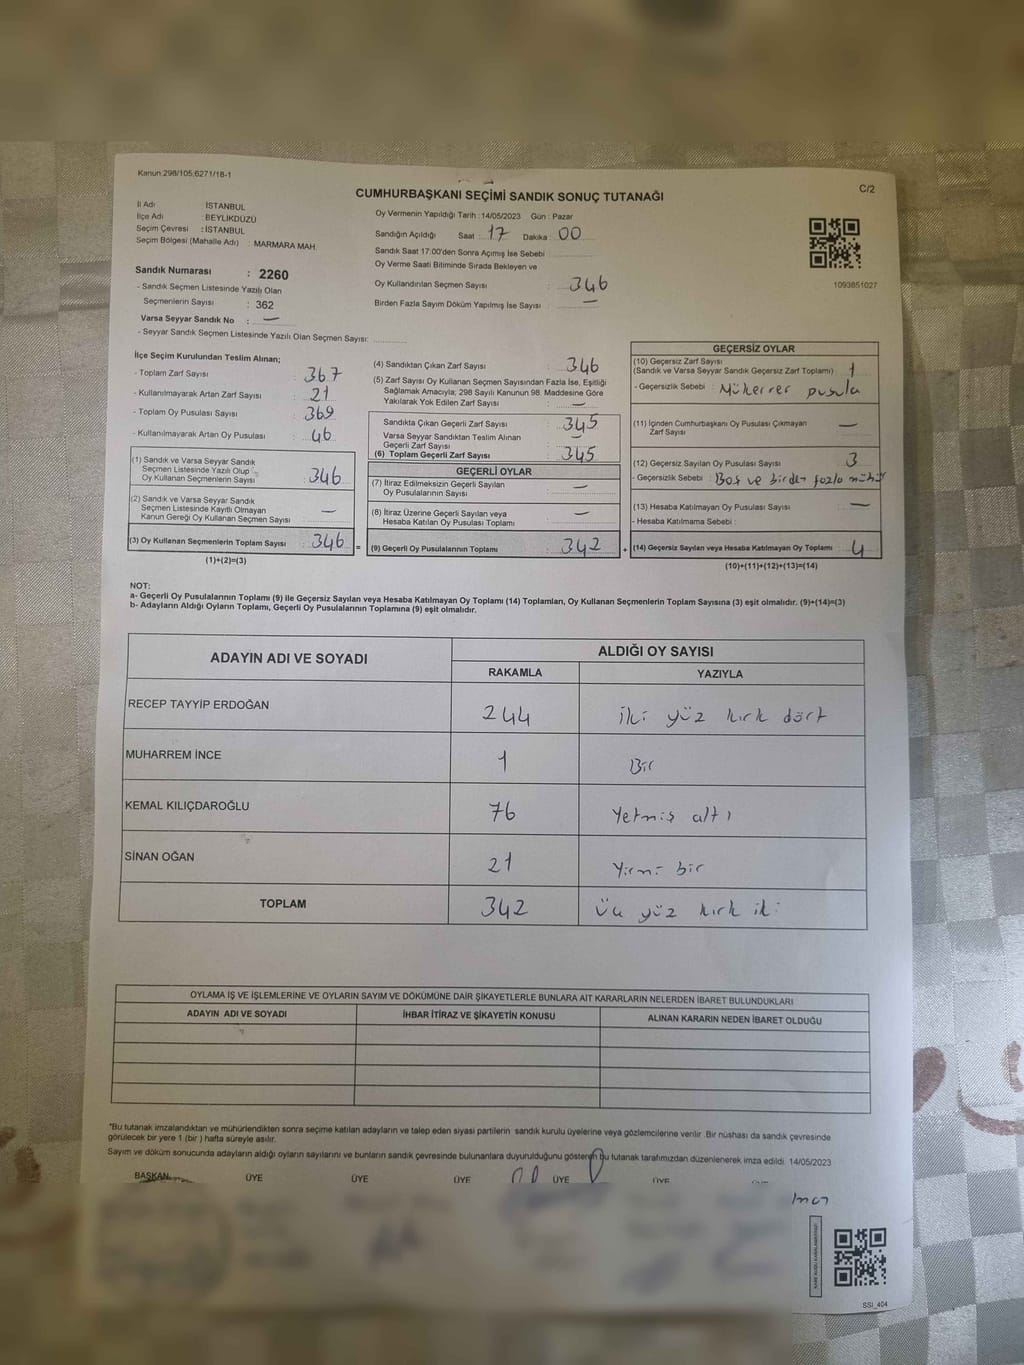 Kanun.298/105,6271/18-1
C/2
CUMHURBAŞKANI SEÇİMİ SANDIK SONUÇ TUTANAĞI
İl Adı İSTANBUL
İlçe Adı : BEYLİKDÜZÜ
Seçim Çevresi : İSTANBUL
Seçim Bölgesi (Mahalle Adı) : MARMARA MAH.
Sandık Numarası : 2260
- Sandık Seçmen Listesinde Yazılı Olan
Seçmenlerin Sayısı : 362
Varsa Seyyar Sandık No : —
- Seyyar Sandık Seçmen Listesinde Yazılı Olan Seçmen Sayısı:
Oy Vermenin Yapıldığı Tarih : 14/05/2023 Gün : Pazar
Sandığın Açıldığı Saat : 17 Dakika : 00
Sandık Saat 17:00'den Sonra Açımış İse Sebebi :
Oy Verme Saati Bitiminde Sırada Bekleyen ve
Oy Kullandırılan Seçmen Sayısı : 346
Birden Fazla Sayım Döküm Yapılmış İse Sayısı : —
1093851027
İlçe Seçim Kurulundan Teslim Alınan;
- Toplam Zarf Sayısı : 367
- Kullanılmayarak Artan Zarf Sayısı : 21
- Toplam Oy Pusulası Sayısı : 369
- Kullanılmayarak Artan Oy Pusulası : 46
(1) Sandık ve Varsa Seyyar Sandık
Seçmen Listesinde Yazılı Olup
Oy Kullanan Seçmenlerin Sayısı : 346
(2) Sandık ve Varsa Seyyar Sandık
Seçmen Listesinde Kayıtlı Olmayan
Kanun Gereği Oy Kullanan Seçmen Sayısı : —
(3) Oy Kullanan Seçmenlerin Toplam Sayısı : 346 =
(1)+(2)=(3)
(4) Sandıktan Çıkan Zarf Sayısı : 346
(5) Zarf Sayısı Oy Kullanan Seçmen Sayısından Fazla İse, Eşitliği
Sağlamak Amacıyla; 298 Sayılı Kanunun 98. Maddesine Göre
Yakılarak Yok Edilen Zarf Sayısı : —
Sandıkta Çıkan Geçerli Zarf Sayısı : 345
Varsa Seyyar Sandıktan Teslim Alınan
Geçerli Zarf Sayısı : —
(6) Toplam Geçerli Zarf Sayısı : 345
GEÇERLİ OYLAR
(7) İtiraz Edilmeksizin Geçerli Sayılan
Oy Pusulalarının Sayısı : —
(8) İtiraz Üzerine Geçerli Sayılan veya
Hesaba Katılan Oy Pusulası Toplamı : —
(9) Geçerli Oy Pusulalarının Toplamı : 342 +
GEÇERSİZ OYLAR
(10) Geçersiz Zarf Sayısı
(Sandık ve Varsa Seyyar Sandık Geçersiz Zarf Toplamı) : 1
- Geçersizlik Sebebi : Mükerrer pusula
(11) İçinden Cumhurbaşkanı Oy Pusulası Çıkmayan
Zarf Sayısı : —
(12) Geçersiz Sayılan Oy Pusulası Sayısı : 3
- Geçersizlik Sebebi : Boş ve birden fazla mühür
(13) Hesaba Katılmayan Oy Pusulası Sayısı : —
- Hesaba Katılmama Sebebi :
(14) Geçersiz Sayılan veya Hesaba Katılmayan Oy Toplamı : 4
(10)+(11)+(12)+(13)=(14)
NOT:
a- Geçerli Oy Pusulalarının Toplamı (9) ile Geçersiz Sayılan veya Hesaba Katılmayan Oy Toplamı (14) Toplamları, Oy Kullanan Seçmenlerin Toplam Sayısına (3) eşit olmalıdır. (9)+(14)=(3)
b- Adayların Aldığı Oyların Toplamı, Geçerli Oy Pusulalarının Toplamına (9) eşit olmalıdır.
ADAYIN ADI VE SOYADI
ALDIĞI OY SAYISI
RAKAMLA YAZIYLA
RECEP TAYYİP ERDOĞAN 244 iki yüz kırk dört
MUHARREM İNCE 1 Bir
KEMAL KILIÇDAROĞLU 76 Yetmiş altı
SİNAN OĞAN 21 Yirmi bir
TOPLAM 342 Üç yüz kırk iki
OYLAMA İŞ VE İŞLEMLERİNE VE OYLARIN SAYIM VE DÖKÜMÜNE DAİR ŞİKAYETLERLE BUNLARA AİT KARARLARIN NELERDEN İBARET BULUNDUKLARI
ADAYIN ADI VE SOYADI İHBAR İTİRAZ VE ŞİKAYETİN KONUSU ALINAN KARARIN NEDEN İBARET OLDUĞU
*Bu tutanak imzalandıktan ve mühürlendikten sonra seçime katılan adayların ve talep eden siyasi partilerin sandık kurulu üyelerine veya gözlemcilerine verilir. Bir nüshası da sandık çevresinde
görülecek bir yere 1 (bir ) hafta süreyle asılır.
Sayım ve döküm sonucunda adayların aldığı oyların sayılarını ve bunların sandık çevresinde bulunanlara duyurulduğunu gösteren bu tutanak tarafımızdan düzenlenerek imza edildi. 14/05/2023
BAŞKAN ÜYE ÜYE ÜYE ÜYE ÜYE
SSI_404